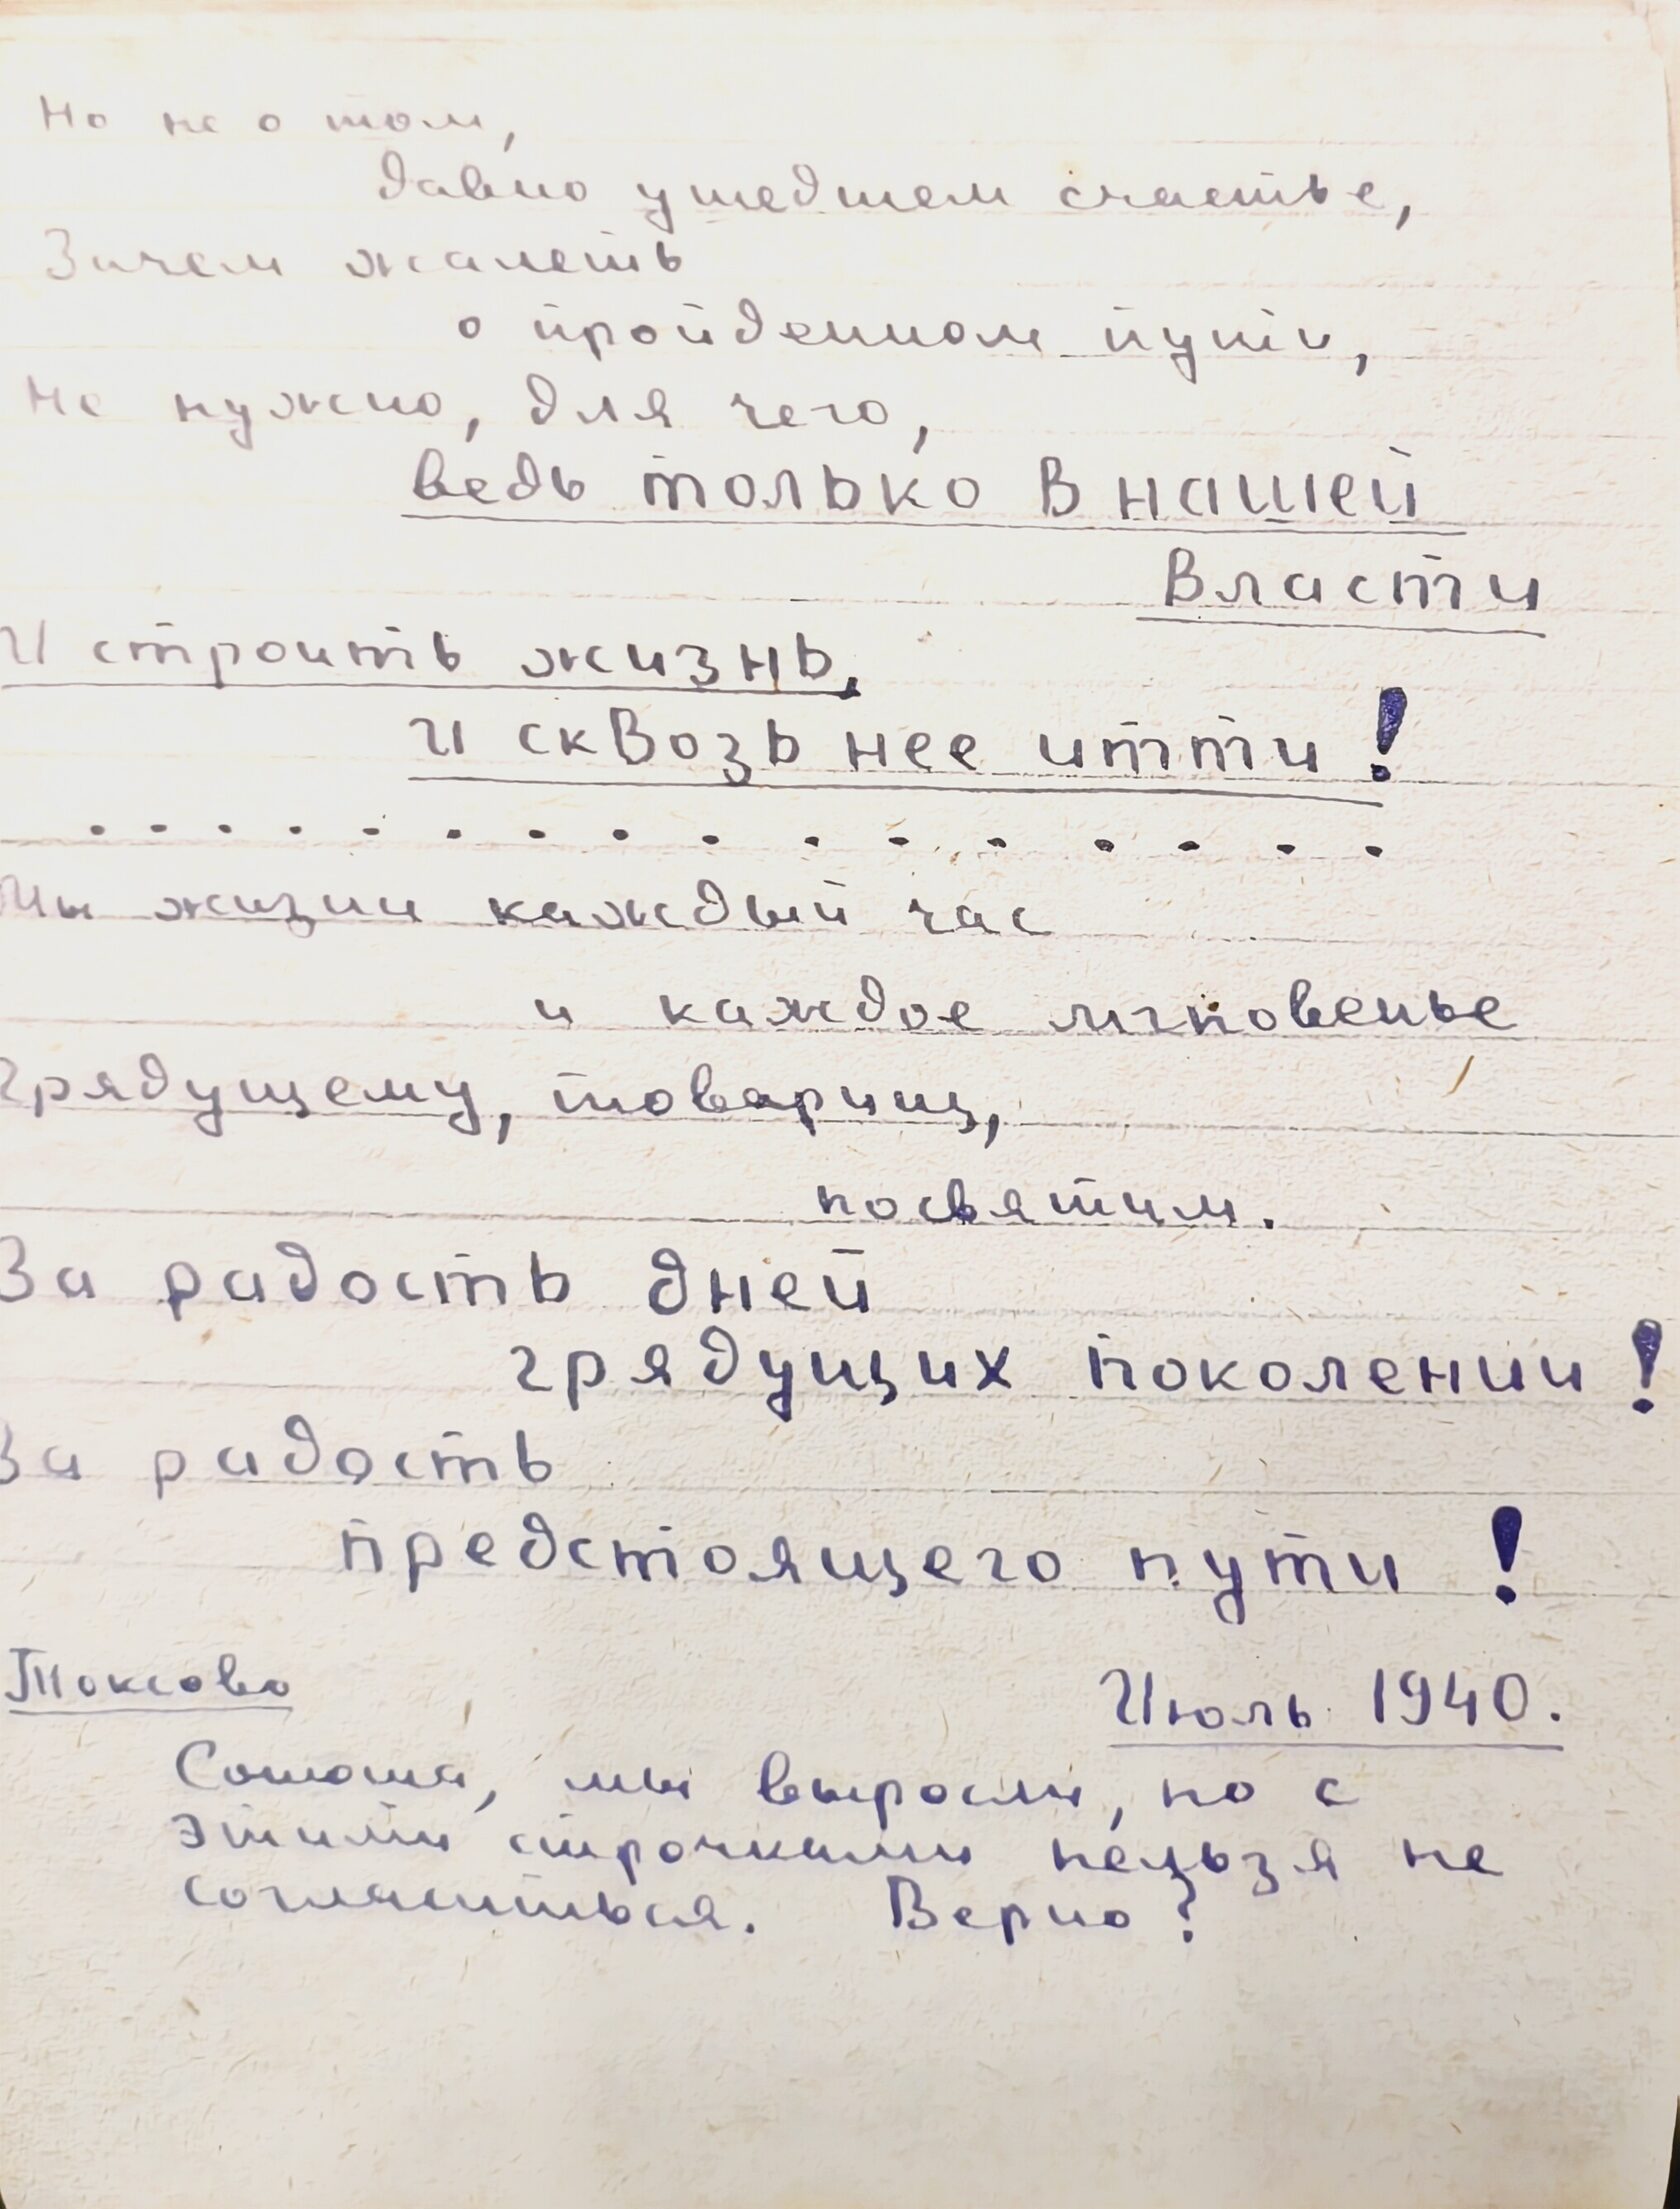 Но не о том,
давно ушедшем счастье,
Зачем жалеть
о пройденном пути,
Не нужно, для чего,
ведь только в нашей
власти
И строить жизнь,
И сквозь нее итти!
. . . . . . . . . . . . . . . .
Мы жизни каждый час
и каждое мгновенье
Грядущему, товарищ,
посвятим.
За радость дней
грядущих поколении!
За радость
предстоящего пути!
Токсово
Июль 1940.
мы выросли, но с
этими строчками нельзя не
согласиться. Верно?